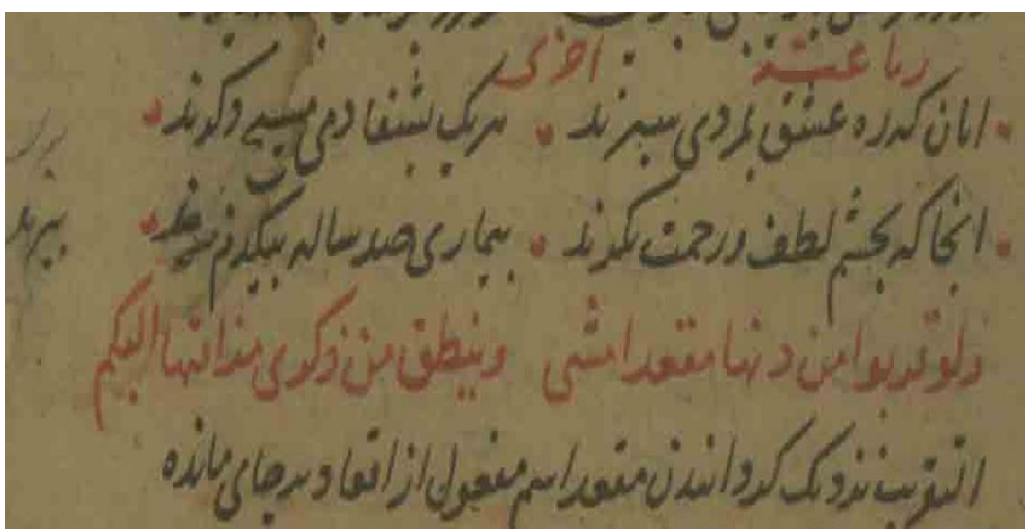 رباعیة اخری
انان که ره عشق بمردی سپرند هریک بشفا دمی مسیح دکرند
انجا که بچشم لطف و رحمت نکرند بیماری صد ساله بیکدم
ولو قربوا من دنها مقعدا مشی وینطق من ذکری مذاقتها البکم
التقریب نزدیک کردانیدن مقعد اسم مفعول از اقعاد برجای مانده